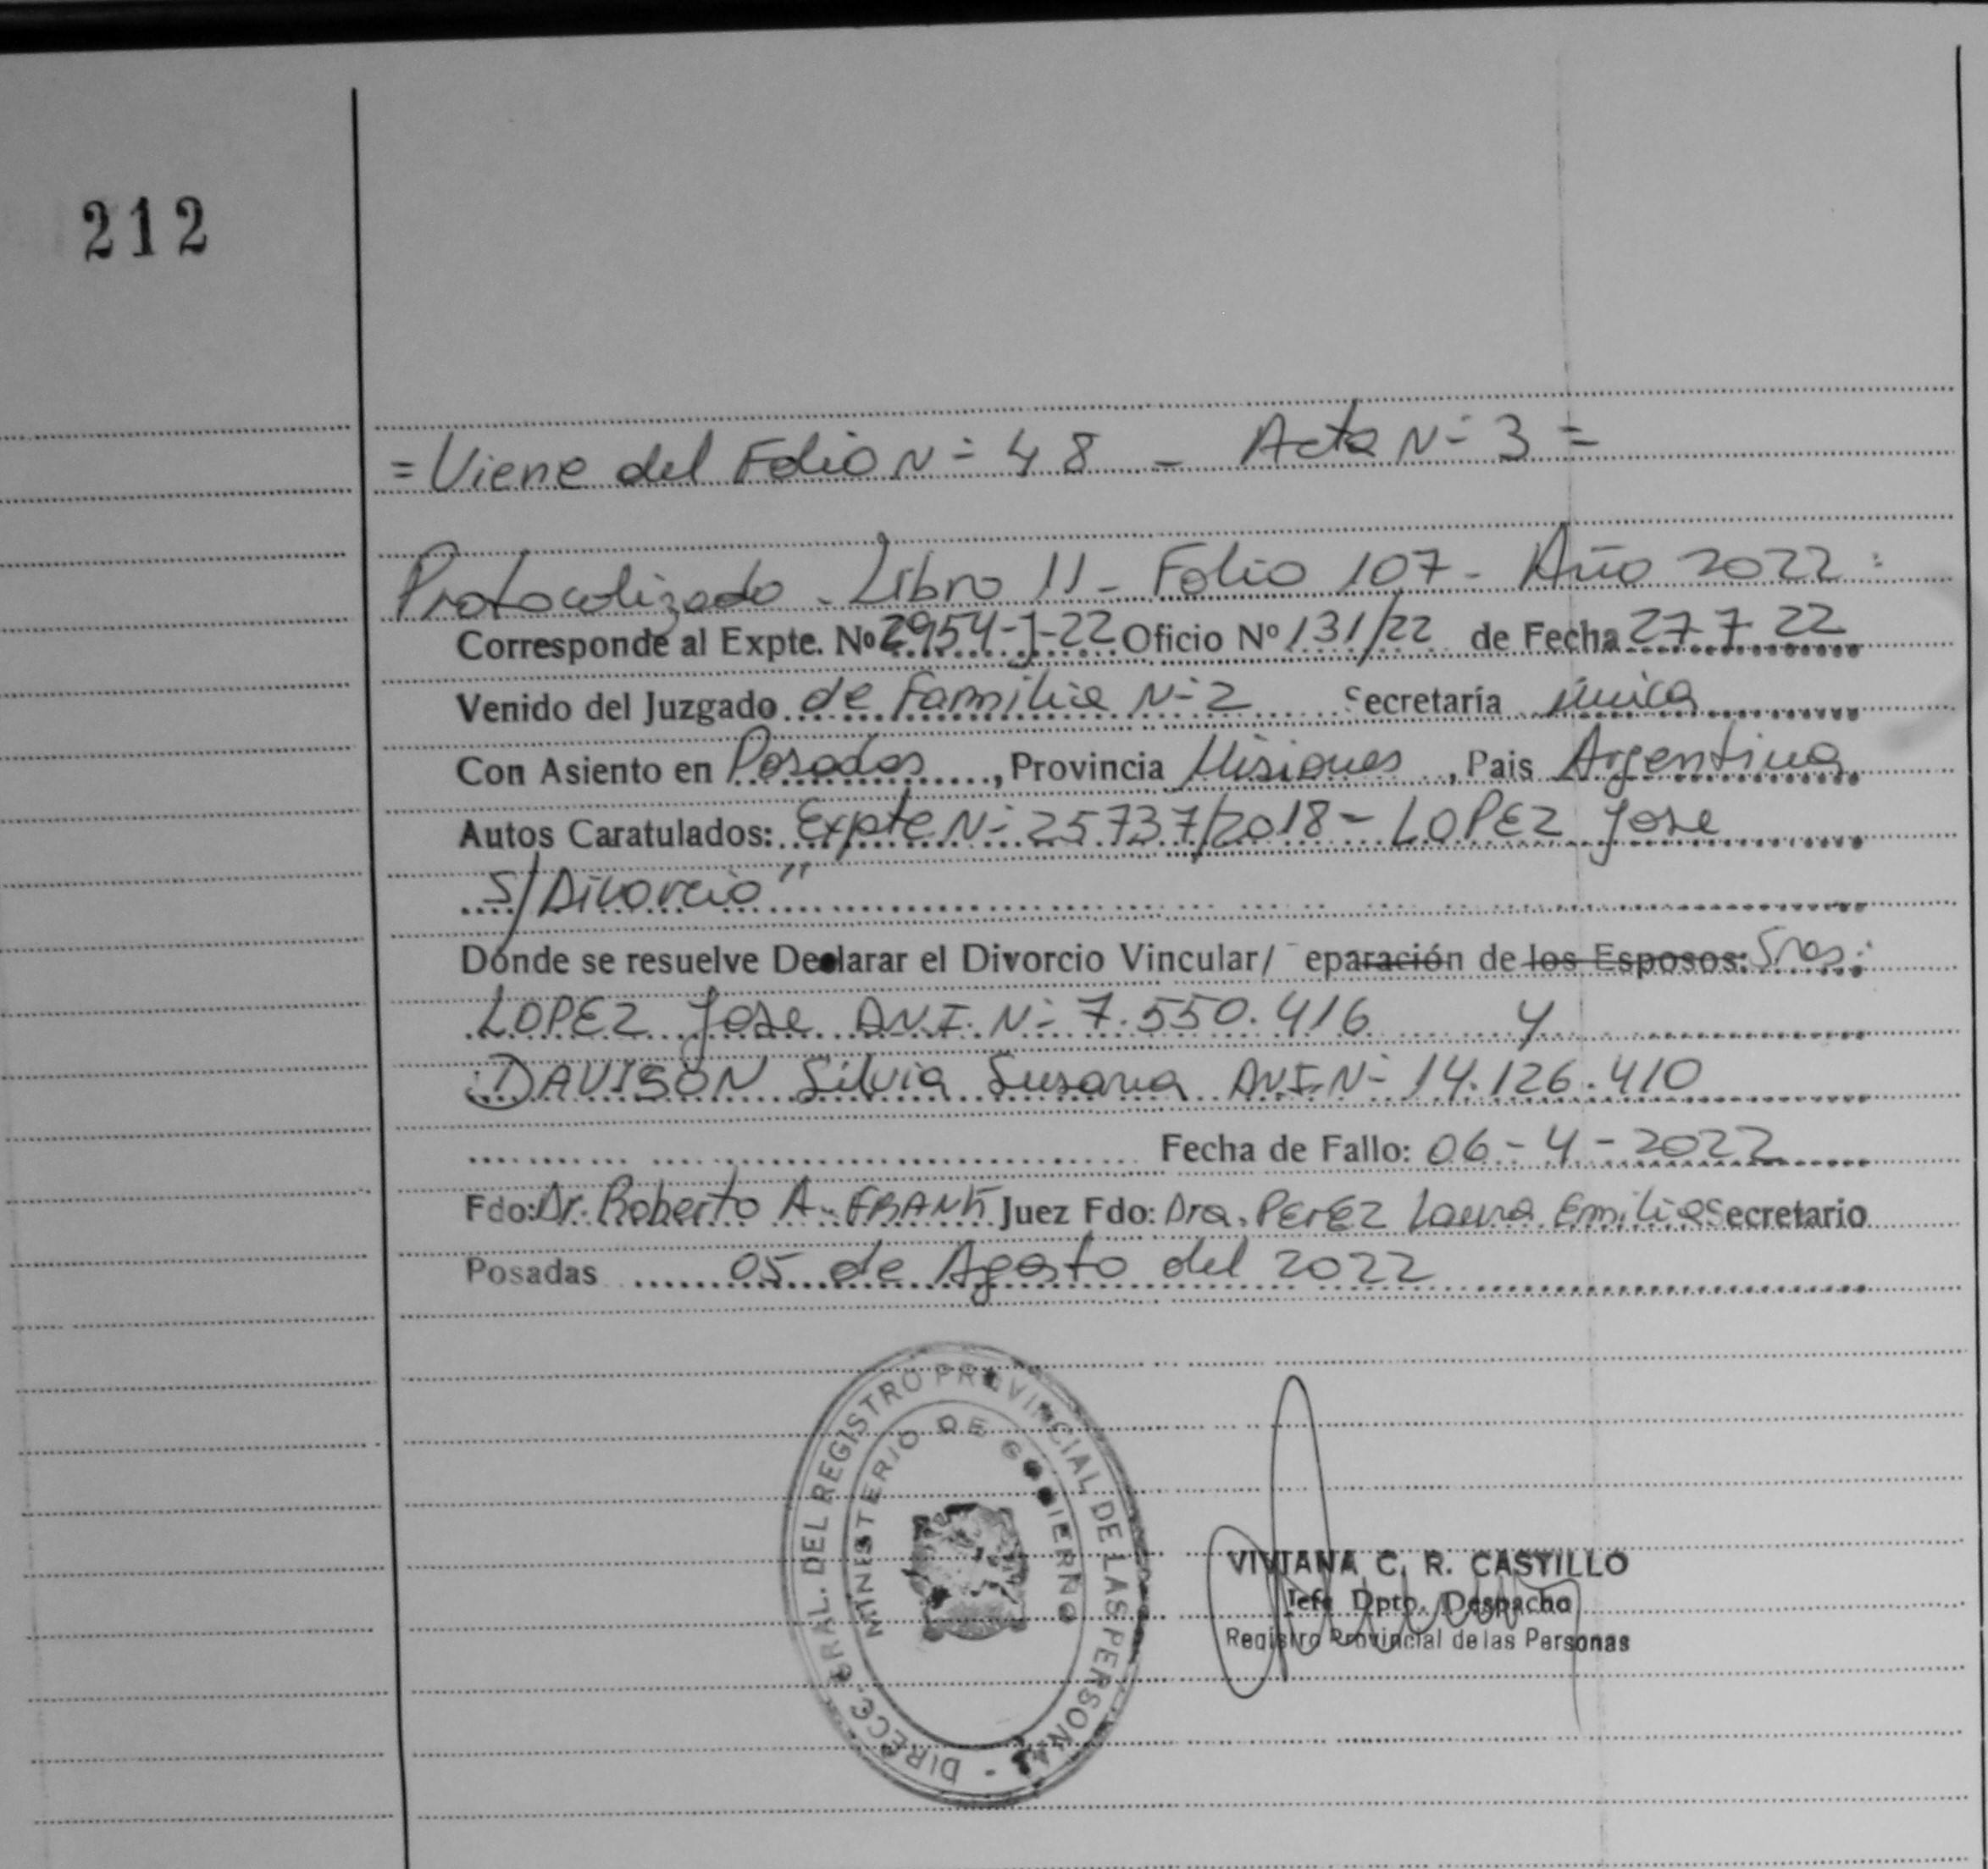 212
= Viene del Folio N= 48 - Acta N= 3 =
Protocolizado - Libro 11 - Folio 107 - Año 2022 =
Corresponde al Expte. Nº 2954-J-22 Oficio Nº 131/22 de Fecha 27-7-22
Venido del Juzgado de Familia N=2 Secretaría Única
Con Asiento en Posadas, Provincia Misiones, Pais Argentina
Autos Caratulados: Expte N= 25737/2018 - LOPEZ Jose
S/Divorcio"
Donde se resuelve Declarar el Divorcio Vincular/ eparación de los Esposos: Sres:
LOPEZ Jose D.N.I. N= 7.550.416 y
DAVISON Silvia Susana D.N.I. N= 14.126.410
Fecha de Fallo: 06-4-2022
Fdo: Dr. Roberto A. Juez Fdo: Dra. PEREZ Laura Emilia Secretario
Posadas 05 de Agosto del 2022
DIRECC. GRAL. DEL REGISTRO PROVINCIAL DE LAS PERSONAS -
MINISTERIO DE GOBIERNO
VIVIANA C. R. CASTILLO
Jefe Dpto. Despacho
Registro Provincial de las Personas